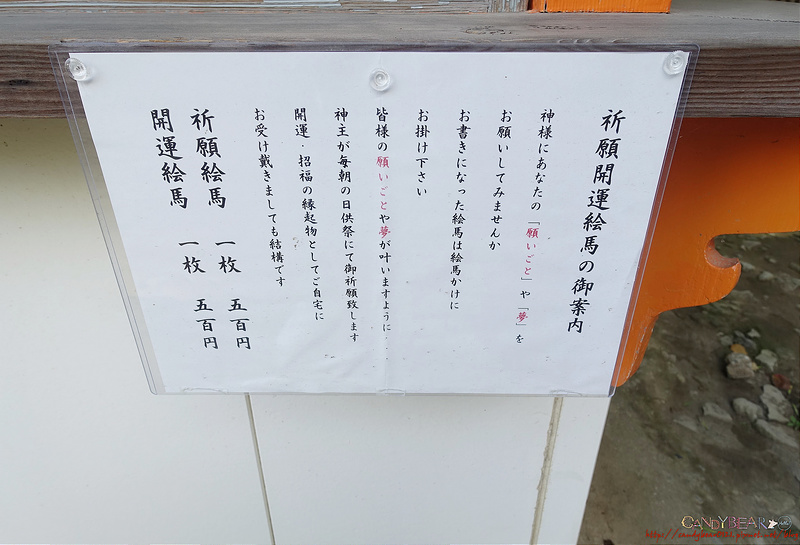 祈願開運絵馬の御案内
神様にあなたの「願いごと」や「夢」を
お願いしてみませんか
お書きになった絵馬は絵馬かけに
お掛け下さい
皆様の願いごとや夢が叶いますように....
神主が毎朝の日供祭にて御祈願致します
開運・招福の縁起物としてご自宅に
お受け戴きましても結構です
祈願絵馬 一枚 五百円
開運絵馬 一枚 五百円
CANDYBEAR